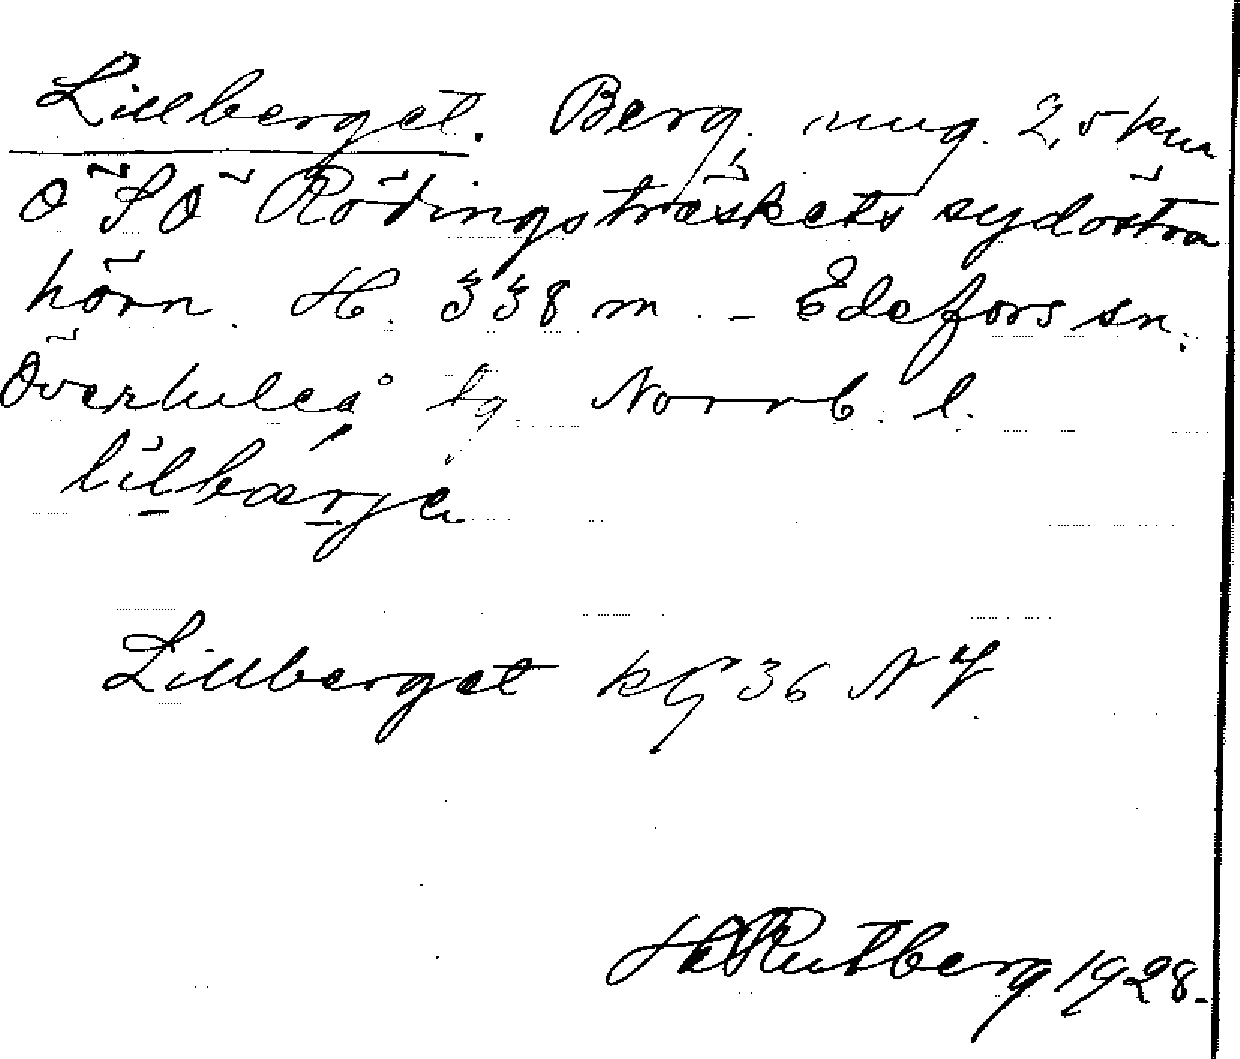 Lillberget. Berg, ung. 2,5 km
ÖSÖ Rödingsträskets sydöstra
hörn. H. 338 m. - Edefors sn.
Överluleå tg. Norrb. l.
lilbærje
Lillberget kG 36 NV.
Hd Rutberg 1928.